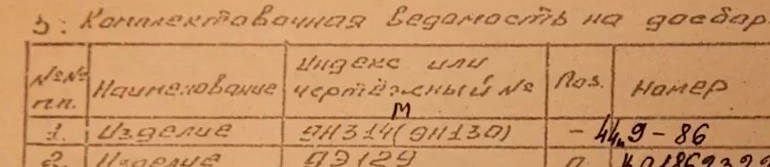 3. Комплектовочная ведомость на досбор
№№ п.п. Наименование Индекс или чертёжный № Поз. Номер
М
1. Изделие 9Н314(9Н130) - 44 9-86
2. Изделие 9Э129 П